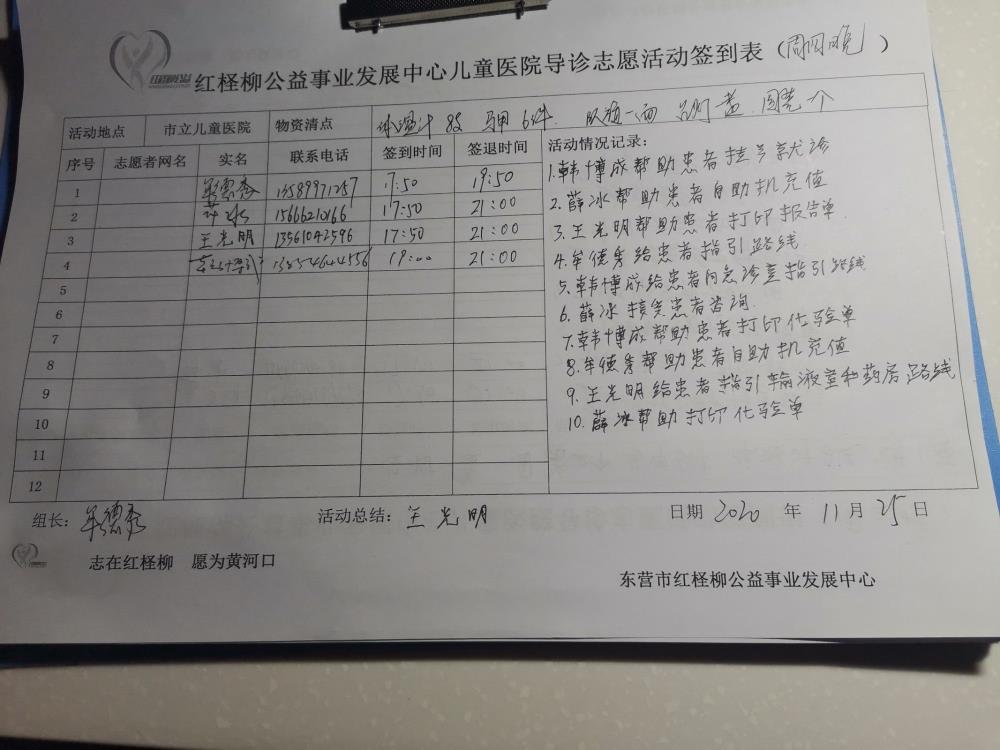 红柽柳公益事业发展中心儿童医院导诊志愿活动签到表（周四晚）
活动地点 市立儿童医院 物资清点 体温计 8支 马甲 6件 队旗一面
序号 志愿者网名 实名 联系电话 签到时间 签退时间 活动情况记录：
1 牟德秀 13589971257 17:50 19:50
2 薛冰 15666210166 17:50 21:00
3 王光明 13561042596 17:50 21:00
4 13854644556 18:00 21:00
5
6
7
8
9
10
11
12
1.韩博成帮助患者挂号就诊
2.薛冰帮助患者自助机充值
3.王光明帮助患者打印报告单
4.牟德秀给患者指引路线
5.韩博成给患者问急诊室指引路线
6.薛冰接待患者咨询
7.韩博成帮助患者打印化验单
8.牟德秀帮助患者自助机充值
9.王光明给患者指引输液室和药房路线
10.薛冰帮助打印化验单
组长：牟德秀 活动总结：王光明 日期 2020 年 11 月 25 日
志在红柽柳 愿为黄河口
东营市红柽柳公益事业发展中心